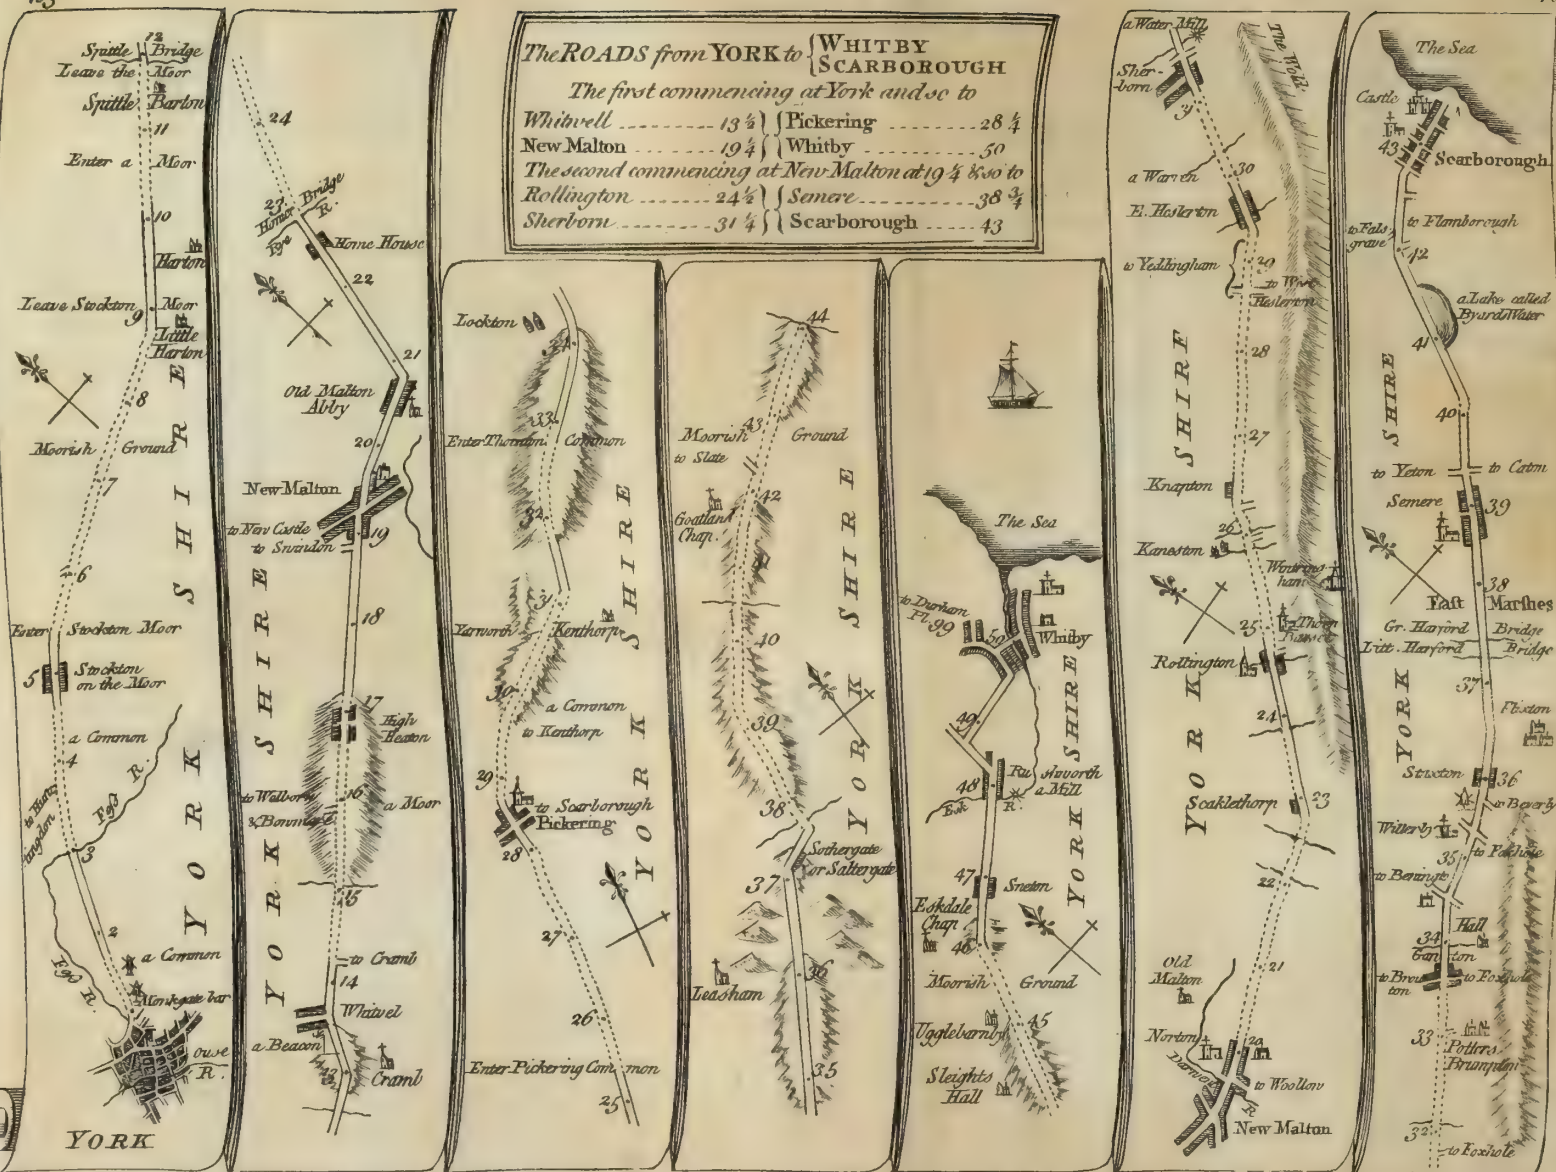 The ROADS from YORK to { WHITBY
SCARBOROUGH
The first commencing at York and so to
Whitwell ---------- 13 ½ } { Pickering -------- 28 ¼
New Malton -------- 19 ¼ } { Whitby ---------- 50
The second commencing at New Malton at 19 ¼ & so to
Rollington -------- 24 ½ } { Semere --------- 38 ¾
Sherborn --------- 31 ¼ } { Scarborough ----- 43
12
Spittle Bridge
Leave the Moor
Spittle Barton
11
Enter a Moor
10
Harton
Leave Stockton Moor
9
Little
Harton
8
Moorish Ground
7
6
Enter Stockton Moor
5
Stockton
on the Moor
a Common
4
Foss R.
3
2
a Common
Foss R.
Monkgate bar
Ouse
R.
YORK
YORK SHIRE
24
23
Bridge
R.
Home House
22
21
Old Malton
Abby
20
New Malton
to New Castle
19
to Swindon
18
17
High
Heaton
to Welborn
16
a Moor
15
to Cramb
14
Whitvel
a Beacon
13
Cramb
YORK SHIRE
Lockton
34
33
Enter Thornton Common
32
31
Yarnworth
Kenthorp
30
a Common
to Kenthorp
29
to Scarborough
Pickering
28
27
26
Enter Pickering Common
25
YORK SHIRE
44
43
Moorish Ground
to Slate
42
Goatland
Chap.
40
39
38
Sothergate
or Saltergate
37
36
Leasham
35
YORK SHIRE
The Sea
to Durham
Pl. 99
50
Whitby
49
48
Rushworth
a Mill
Esk R.
47
Sneton
Eskdale
Chap.
46
Moorish Ground
Ugglebarnby
45
Sleights
Hall
YORK SHIRE
a Water Mill
Sher-
born
31
The Wold
30
a Warren
E. Heslerton
29
to Yeddingham
to West
Heslerton
28
27
Knapton
26
Kaneston
Wintring
ham
25
Thorp
Rollington
24
Scaklethorp
23
22
21
Old
Malton
Norton
20
to Woollow
R.
New Malton
YORK SHIRE
The Sea
Castle
43
Scarborough
to Flamborough
to Fals
grave
42
a Lake called
Byard Water
41
40
to Yeton
to Caton
Semere
39
38
East Marshes
Gr. Harford Bridge
Litt. Harford Bridge
37
Flixton
Staxton
36
to Beverly
Willerby
35
to Foxhole
Hall
34
Ganton
to Brou
ton
to Foxhole
33
Potters
Brumpton
32
to Foxhole
YORK SHIRE